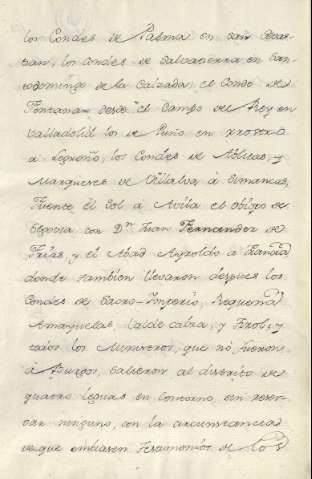 los Condes de Palma en San Sebas-
tian, los Condes de Salvatierra en San-
todomingo de la Calzada, el Conde de
Fontanar desde el Campo del Rey en
Valladolid los de Puño en rostro
á Logroño, los Condes de Ablitas, y
Marqueses de Villalva á Simancas,
Fuente el Sol á Avila el obispo de
Segovia con Dn Juan Fernandez de
Frias, y el Abad Ayroldo á Francia
donde tambien llevaron despues los
Condes de Sacro-Imperio, Requena
Amayuelas, Valde cabra, y Tirol, y
todos los Ministros, que no fueron
á Burgos, Salieron al distrito de
quatro leguas en contorno, sin reser-
var ninguno, con la circunstancia
de que embiasen Testimonios de los